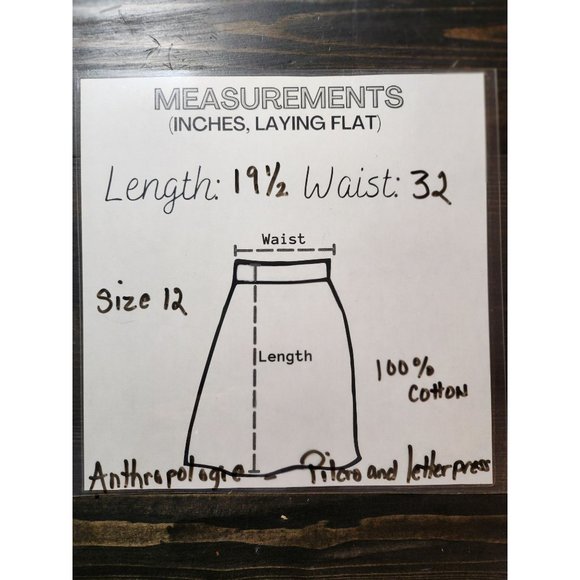 MEASUREMENTS
(INCHES, LAYING FLAT)
Length: 19½ Waist: 32
Waist
Size 12
Length
100%
Cotton
Anthropologie Pilcro and letterpress